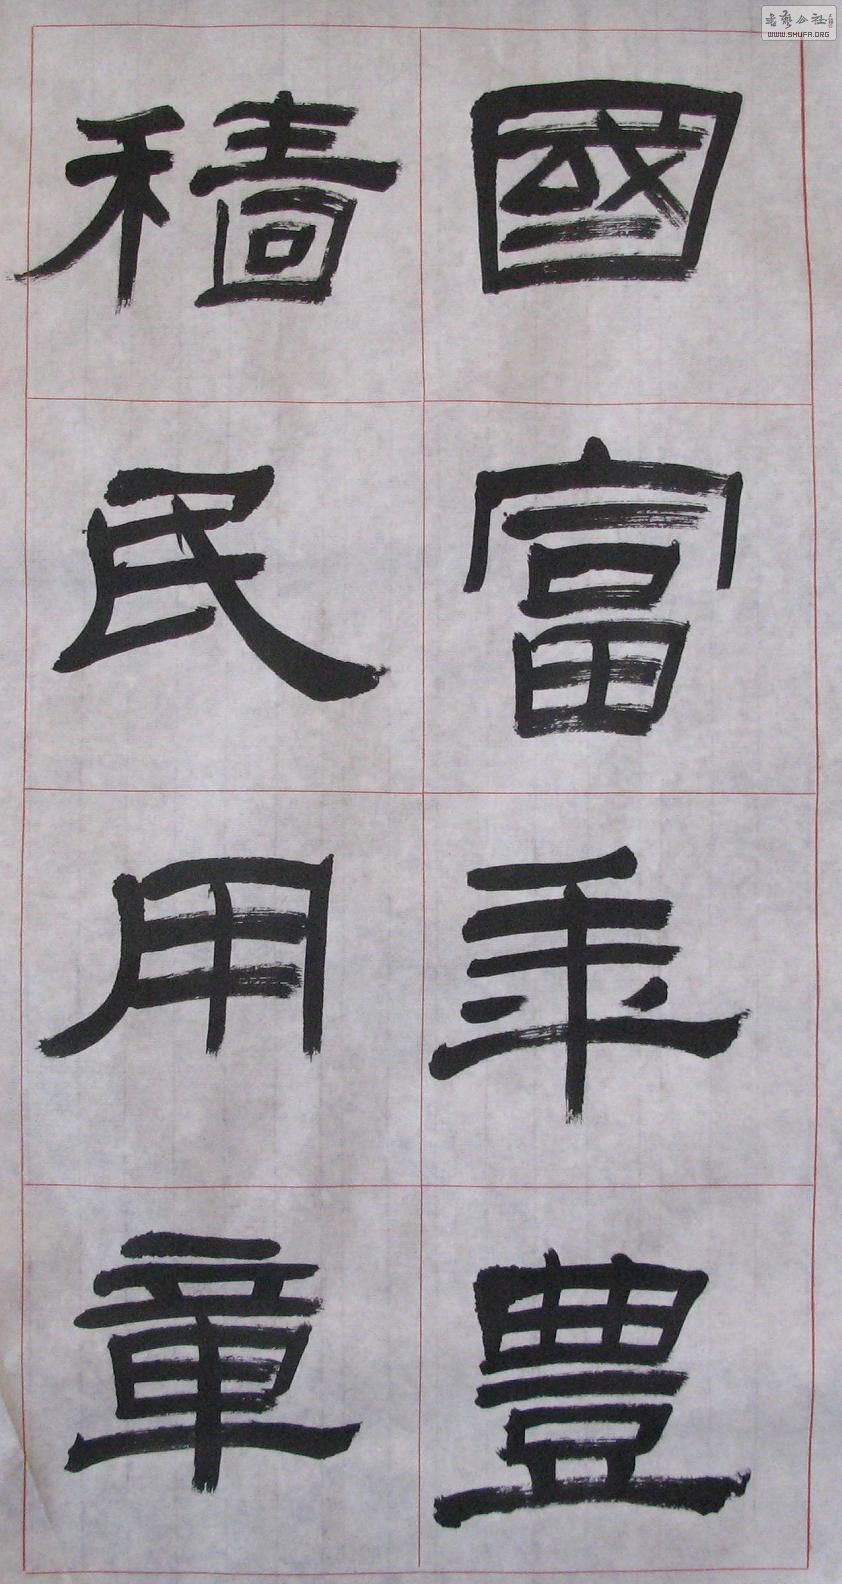 國富年豊
穡民用章
書藝公社
WWW.SHUFA.ORG